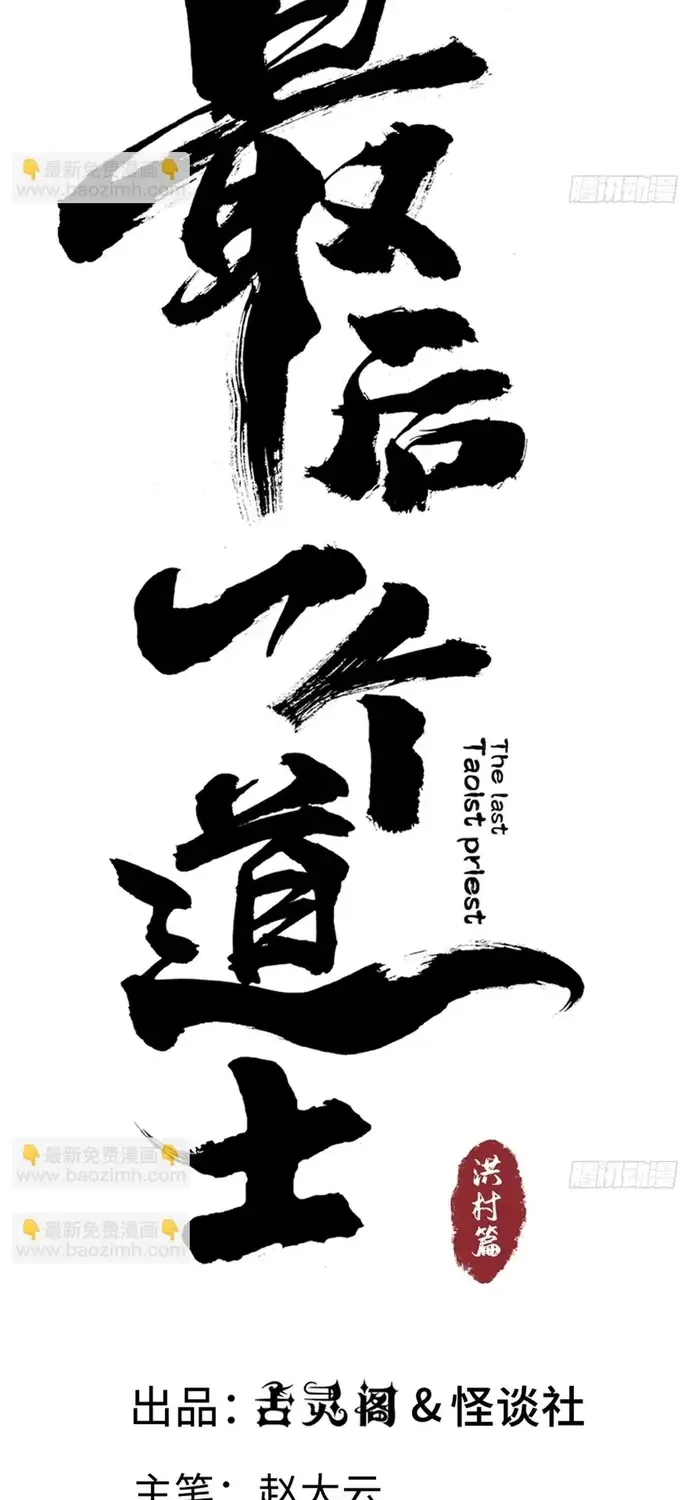 最后一个道士
The last
Taoist priest
👇最新免费漫画👇
www.baozimh.com
腾讯动漫
👇最新免费漫画👇
www.baozimh.com
腾讯动漫
👇最新免费漫画👇
www.baozimh.com
洪村篇
出品：古灵阁&怪谈社
主笔：赵大云